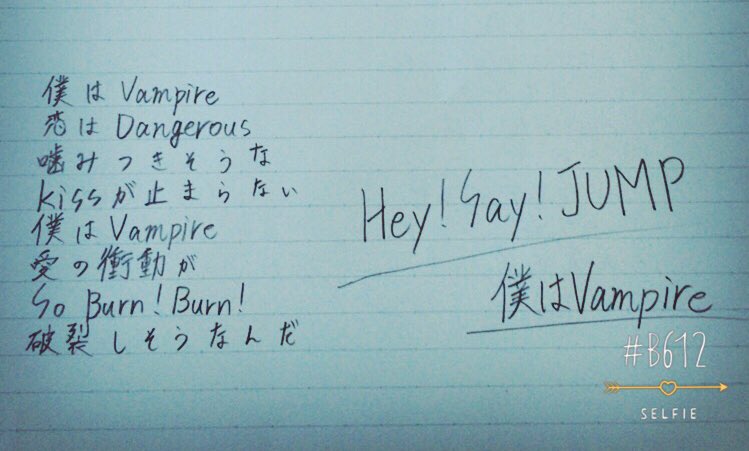 僕はVampire
恋はDangerous
噛みつきそうな
kissが止まらない
僕はVampire
愛の衝動が
So Burn! Burn!
破裂しそうなんだ
Hey! Say! JUMP
僕はVampire
#B612
SELFIE